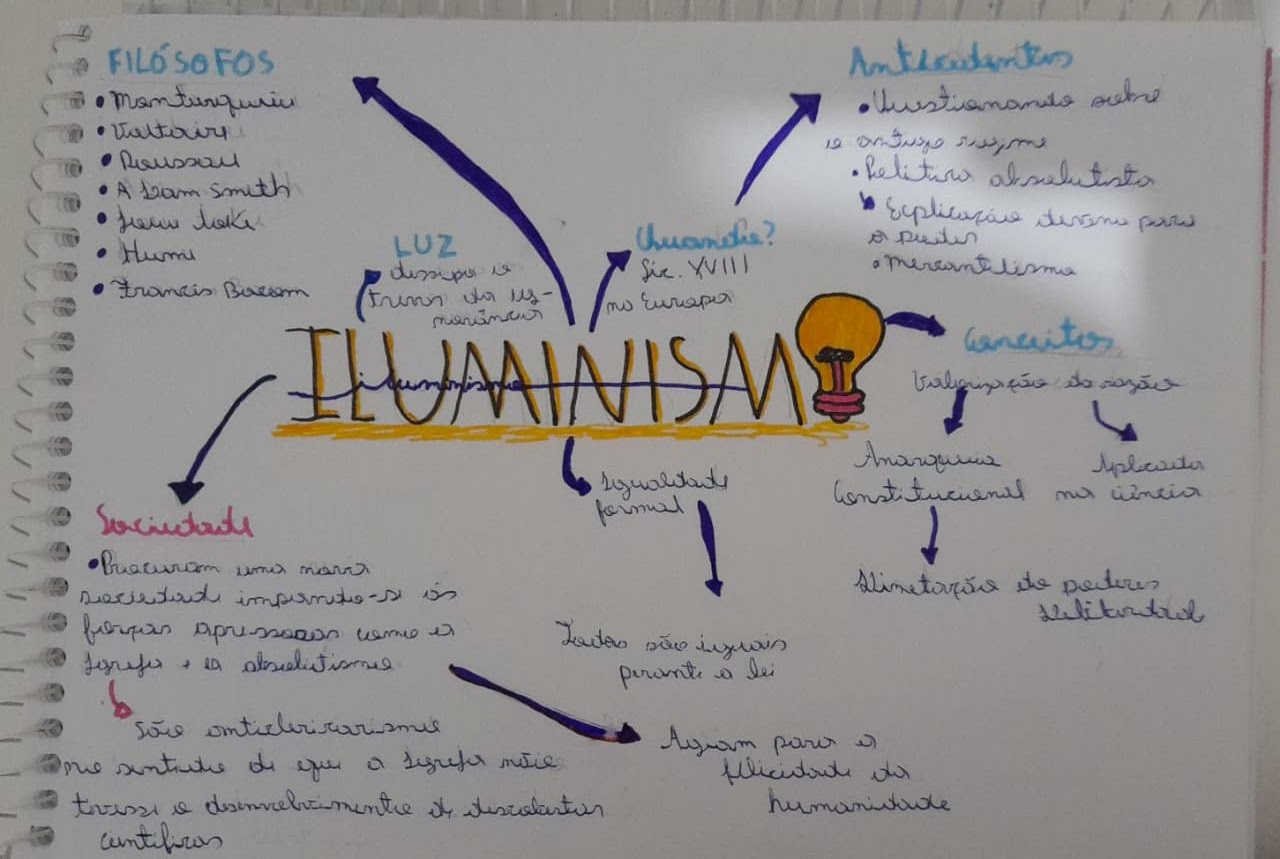 FILÓSOFOS
• Montesquieu
• Voltaire
• Rousseau
• Adam Smith
• Hume
• Francis Bacon
LUZ
dissipa o
trevas da ig-
norância
Quando?
Séc. XVIII
na Europa
Antecedentes
• Questionando sobre
o antigo regime
• Política absolutista
Explicação divina para
o poder
• mercantilismo
ILUMINISM
iluminismo
Conceitos
Valorização da razão
Constitucional
Aplicada
na ciência
Limitação do poderes
Igualdade
formal
Todos são iguais
perante a lei
Sociedade
• Procuram uma nova
sociedade impondo-se ás
forças opressoras como a
Igreja + o absolutismo
São anticlericarismo
no sentido de que a Igreja não
travasse o desenvolvimento de descobertas
científicas
Agiam para a
felicidade da
humanidade